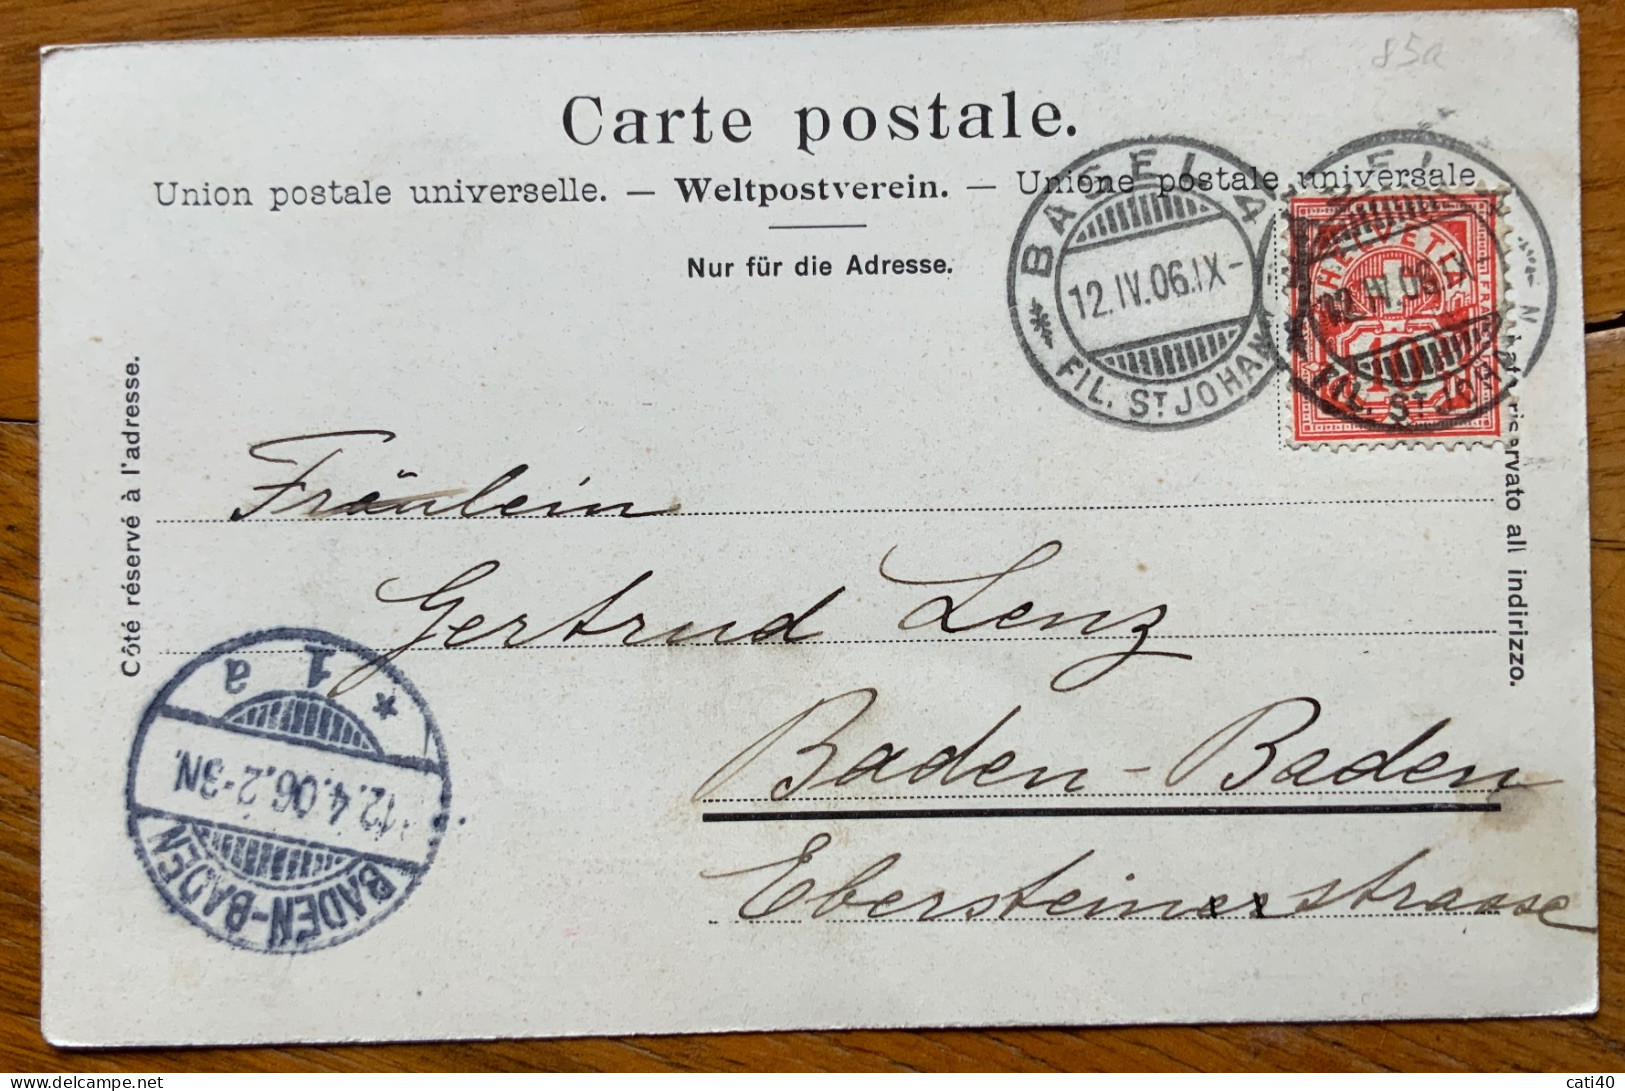 85a
Carte postale.
Union postale universelle. — Weltpostverein. — Unione postale universale
Nur für die Adresse.
BASEL 4
12.IV.06.IX-
FIL. ST JOHANN
HELVETIA
12.IV.06.IX-
10
FIL. ST JOHANN
Côté réservé à l'adresse.
riservato all indirizzo.
Fräulein
Gertrud Lenz
Baden-Baden
Ebersteinerstrasse
BADEN-BADEN
12.4.06.2-3N.
* 1 a
cati40